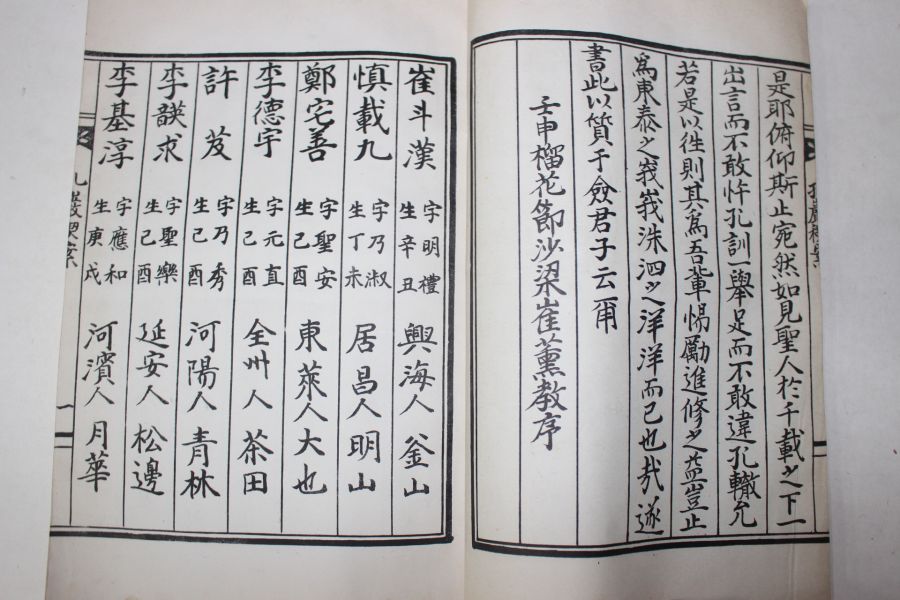 是耶俯仰斯止宛然如見聖人於千載之下一
出言而不敢忤孔訓一舉足而不敢違孔轍允
若是以徃則其爲吾輩惕勵進修之益豈止
爲東泰之峩峩洙泗之洋洋而已也哉遂
書此以質于僉君子云爾
壬申榴花節沙梁崔薰敎序
崔斗漢 字明禮 生辛丑 興海人 釜山
愼載九 字乃淑 生丁未 居昌人 明山
鄭宅善 字聖安 生己酉 東萊人 大也
李德宇 字元直 生己酉 全州人 茶田
許芨 字乃秀 生己酉 河陽人 青林
李韺求 字聖樂 生己酉 延安人 松邊
李基淳 字應和 生庚戌 河濱人 月華
一